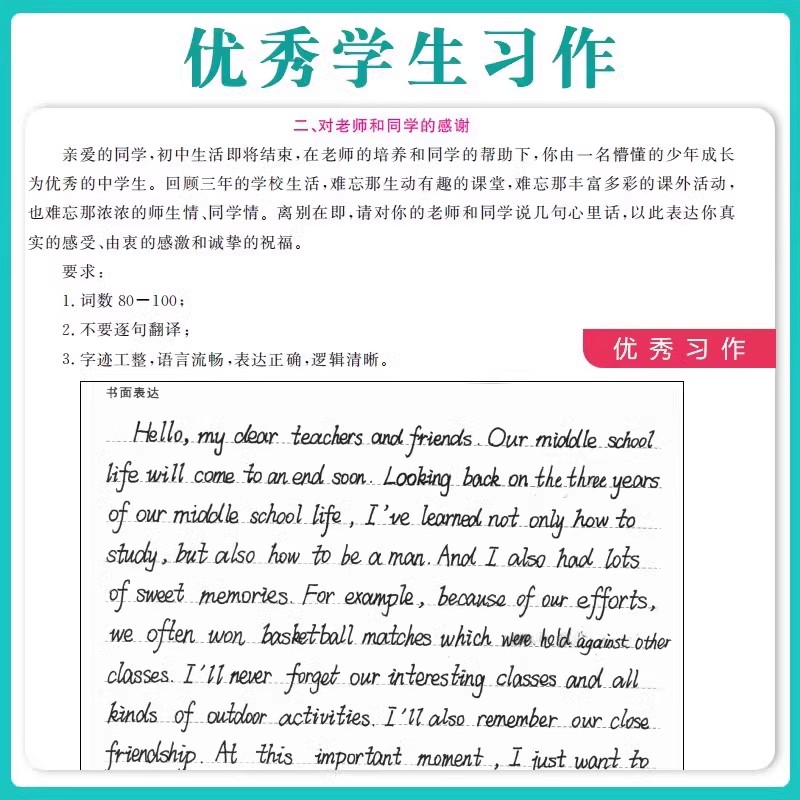 优秀学生习作
二、对老师和同学的感谢
亲爱的同学,初中生活即将结束,在老师的培养和同学的帮助下,你由一名懵懂的少年成长
为优秀的中学生。回顾三年的学校生活,难忘那生动有趣的课堂,难忘那丰富多彩的课外活动,
也难忘那浓浓的师生情、同学情。离别在即,请对你的老师和同学说几句心里话,以此表达你真
实的感受、由衷的感激和诚挚的祝福。
要求:
1. 词数 80－100;
2. 不要逐句翻译;
3. 字迹工整,语言流畅,表达正确,逻辑清晰。
优秀习作
书面表达
Hello, my dear teachers and friends. Our middle school
life will come to an end soon. Looking back on the three years
of our middle school life, I've learned not only how to
study, but also how to be a man. And I also had lots
of sweet memories. For example, because of our efforts,
we often won basketball matches which were held against other
classes. I'll never forget our interesting classes and all
kinds of outdoor activities. I'll also remember our close
friendship. At this important moment, I just want to